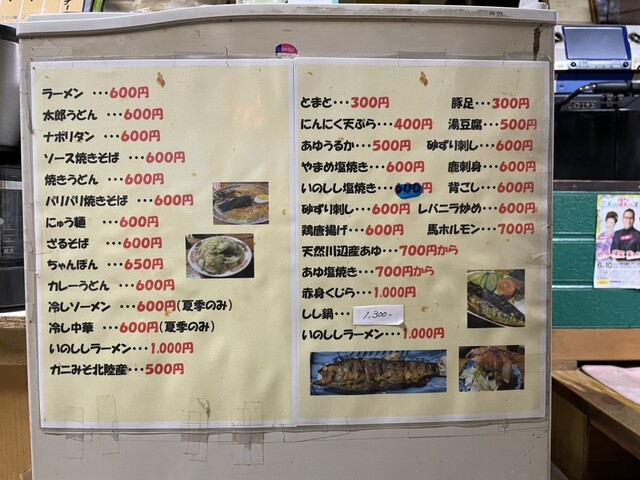 ラーメン ・・・600円
太郎うどん ・・・600円
ナポリタン ・・・600円
ソース焼きそば ・・・600円
焼きうどん ・・・600円
パリパリ焼きそば ・・・600円
にゅう麺 ・・・600円
ざるそば ・・・600円
ちゃんぽん・・・650円
カレーうどん ・・・600円
冷しソーメン ・・・600円(夏季のみ)
冷し中華 ・・・600円(夏季のみ)
いのししラーメン・・・1.000円
カニみそ北陸産・・・500円
とまと・・・300円 豚足・・・300円
にんにく天ぷら・・・400円 湯豆腐・・・500円
あゆうるか・・・500円 砂ずり刺し・・・600円
やまめ塩焼き・・・600円 鹿刺身・・・600円
いのしし塩焼き・・・600円 背ごし・・・600円
砂ずり刺し・・・600円 レバニラ炒め・・・600円
鶏唐揚げ・・・600円 馬ホルモン・・・700円
天然川辺産あゆ・・・700円から
あゆ塩焼き・・・700円から
赤身くじら・・・1.000円
しし鍋・・・ 1,300-
いのししラーメン・・・1.000円
6・10